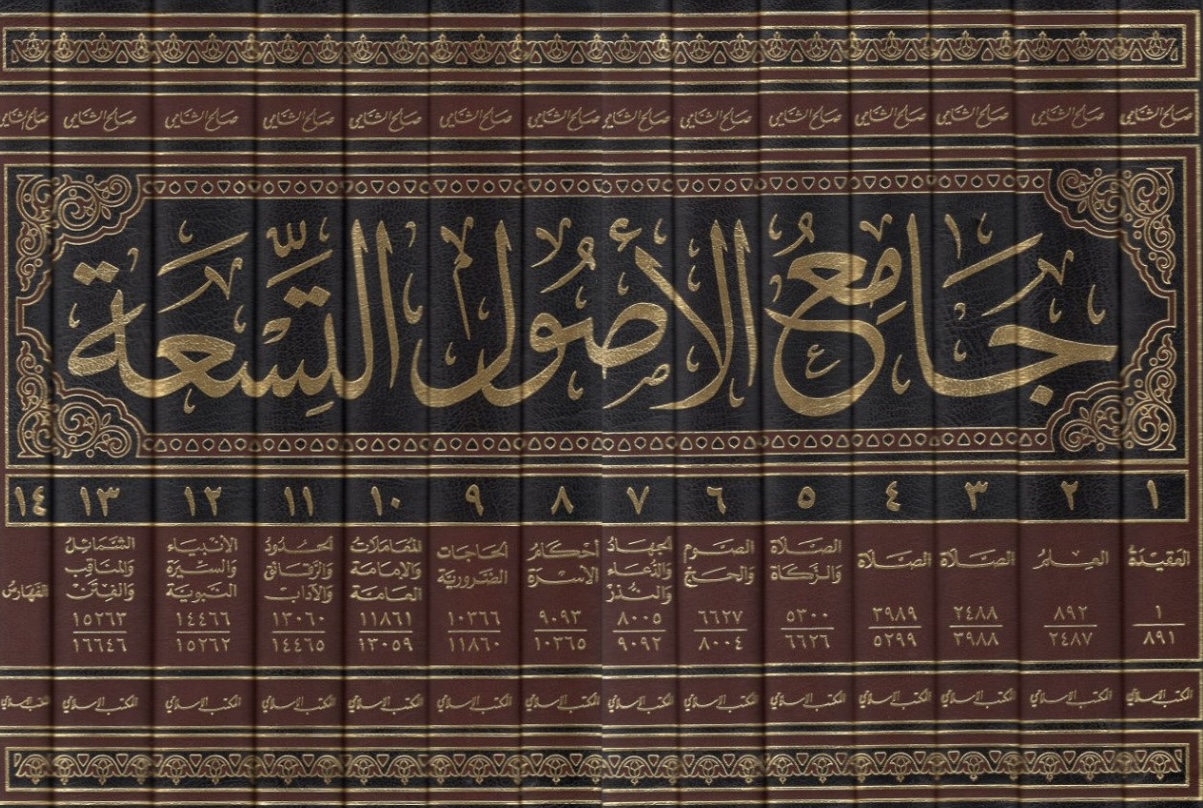 صالح الشامي صالح الشامي صالح الشامي صالح الشامي صالح الشامي صالح الشامي صالح الشامي صالح الشامي صالح الشامي صالح الشامي صالح الشامي صالح الشامي صالح الشامي صالح الشامي
جامع الأصول التسعة
١
العقيدة
١
٨٩١
٢
العلم
٨٩٢
٢٤٨٧
٣
الصلاة
٢٤٨٨
٣٩٨٨
٤
الصلاة
٣٩٨٩
٥٢٩٩
٥
الصلاة
والزكاة
٥٣٠٠
٦٦٢٦
٦
الصوم
والحج
٦٦٢٧
٨٠٠٤
٧
الجهاد
والدعاء
والنذر
٨٠٠٥
٩٠٩٢
٨
أحكام
الأسرة
٩٠٩٣
١٠٣٦٥
٩
الحاجات
الضرورية
١٠٣٦٦
١١٨٦٠
١٠
المعاملات
والإمامة
العامة
١١٨٦١
١٣٠٥٩
١١
الحدود
والرقائق
والآداب
١٣٠٦٠
١٤٤٦٥
١٢
الأنبياء
والسيرة
النبوية
١٤٤٦٦
١٥٢٦٢
١٣
الشمائل
والمناقب
والفتن
١٥٢٦٣
١٦٦٤٦
١٤
الفهارس
المكتب الإسلامي المكتب الإسلامي المكتب الإسلامي المكتب الإسلامي المكتب الإسلامي المكتب الإسلامي المكتب الإسلامي المكتب الإسلامي المكتب الإسلامي المكتب الإسلامي المكتب الإسلامي المكتب الإسلامي المكتب الإسلامي المكتب الإسلامي